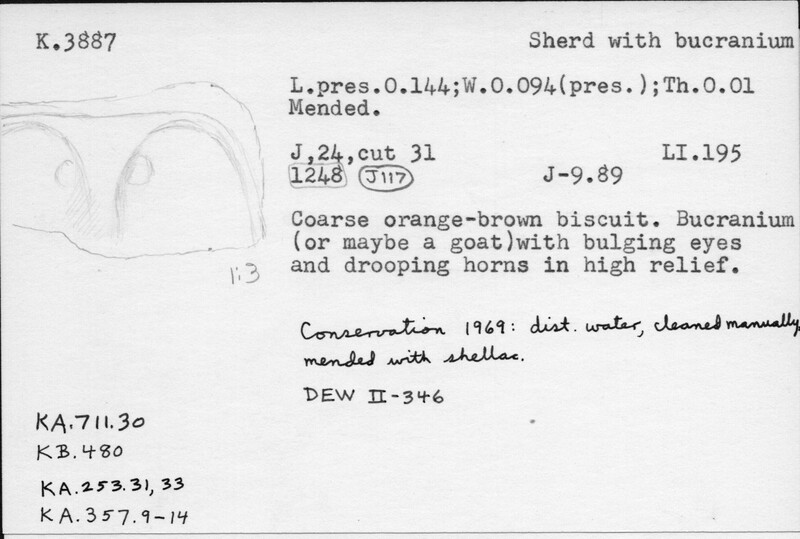 K.3887 Sherd with bucranium
L.pres.0.144;W.0.094(pres.);Th.0.01
Mended.
J,24,cut 31 LI.195
1248 J117 J-9.89
Coarse orange-brown biscuit. Bucranium
(or maybe a goat)with bulging eyes
and drooping horns in high relief.
1:3
Conservation 1969: dist. water, cleaned manually,
mended with shellac.
DEW II-346
KA.711.30
KB.480
KA.253.31,33
KA.357.9-14